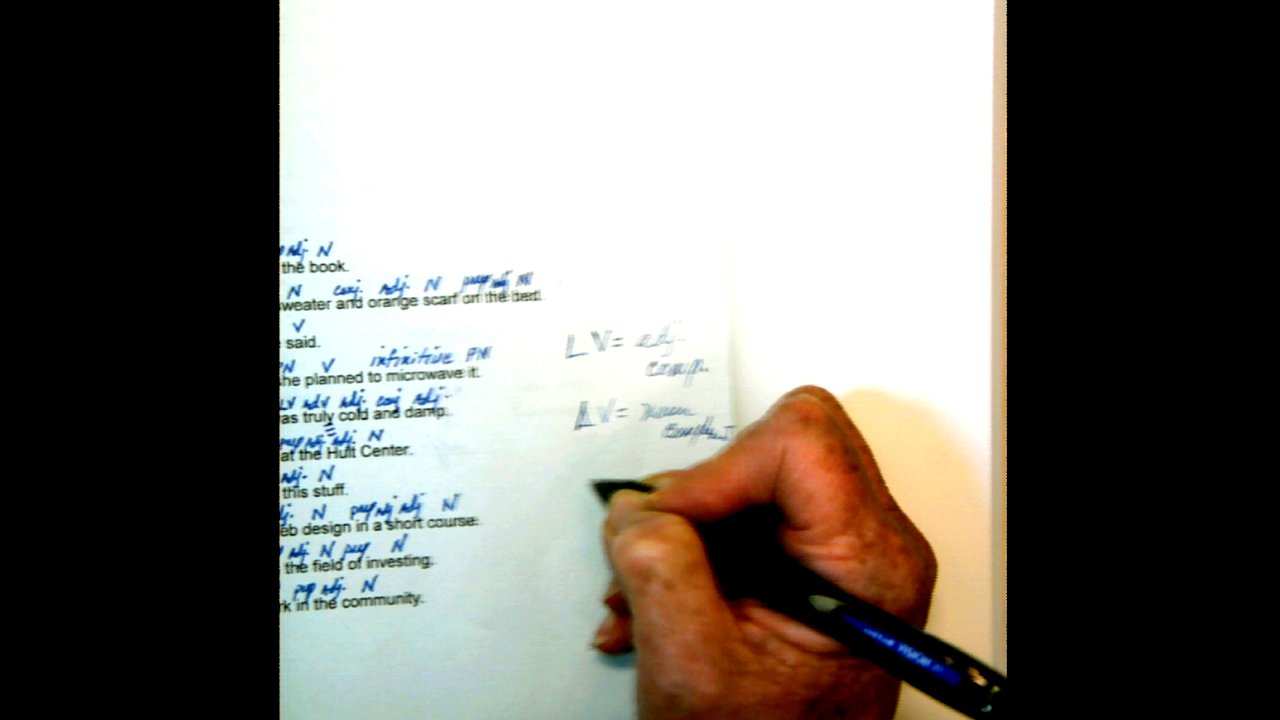 adj. N
the book.
N conj. adj. N prep adj N
sweater and orange scarf on the bed.
V
said.
PN V infinitive PN
she planned to microwave it.
LV adv adj. conj adj.
as truly cold and damp.
prep adj. adj. N
at the Hult Center.
adj. N
this stuff.
adj. N prep adj adj N
eb design in a short course.
adj. N prep N
the field of investing.
prep adj. N
rk in the community.
LV = adj.
comp.
LV = noun
VISION